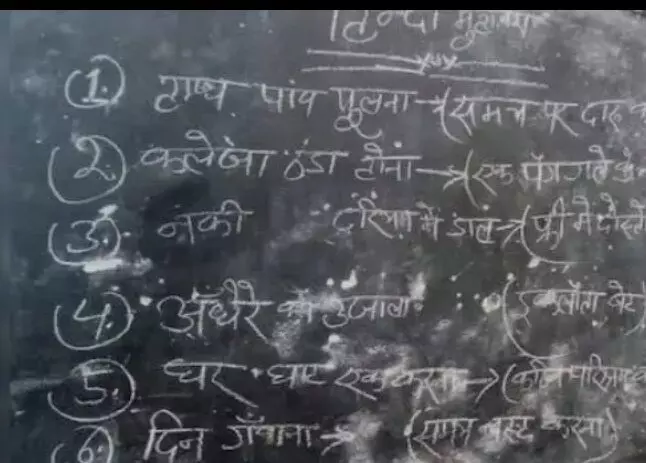 हिन्दी मुहावरा
1. हाथ पांव फूलना → (समय पर दारू
2. कलेजा ठंडा होना → (एक पैग गले के
3. नेकी दरिया मे डाल → (फ्री मे
4. अंधेरे का उजाला (इकलौता बेटा)
5. घर घाट एक करना → (कठिन परिश्रम
6. दिन गँवाना → (समय नस्ट करना)